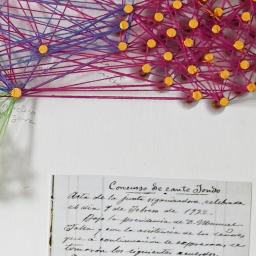 Concurso de cante Jondo
Acta de la junta organizadora, celebrada
el día 7 de Febrero de 1922.
Bajo la presidencia de D. Manuel
Falla y con la asistencia de los señores
que a continuación se expresan, se
tomaron los siguientes acuerdos